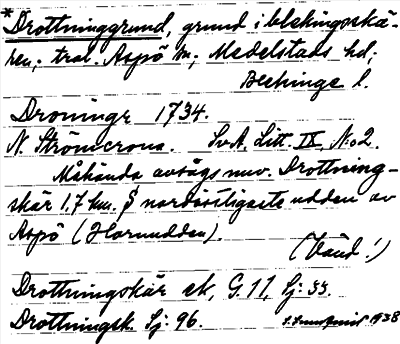 *Drottninggrund, grund i blekingeskä-
ren; tral. Aspö sn; Medelstads hd;
Blekinge l.
Droninge 1734.
N. Strömcrona. SvA, Litt. IX, No 2.
Måhända avsågs nuv. Drottning-
skär 1,7 km. S nordöstligaste udden av
Aspö (Hornudden).
(Vänd!)
Drottningskär ek, G. 11, Sj: 33.
Drottningsk. Sj: 96. 1938